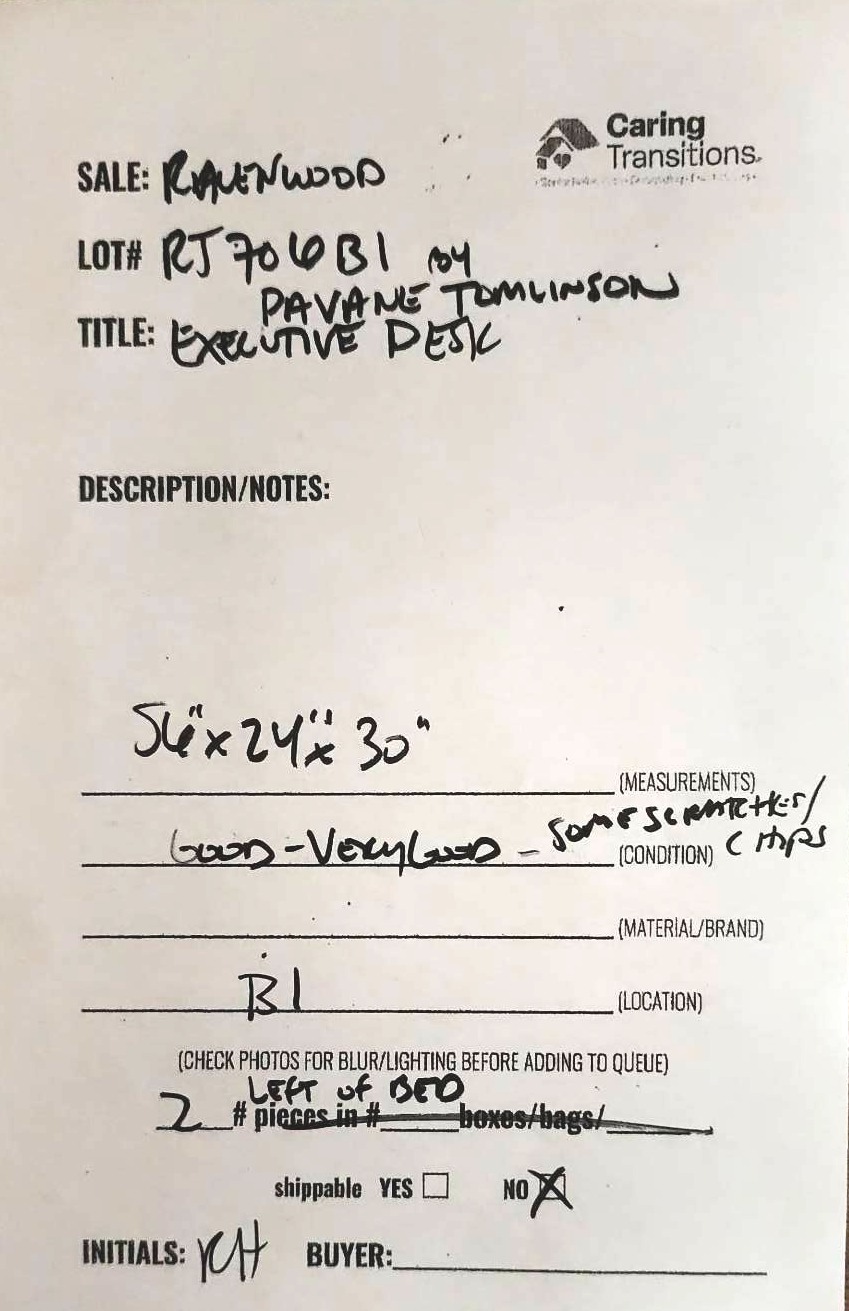 Caring
Transitions.
SALE: RAVENWOOD
LOT# RJ706B1 BY
PAVANE TOMLINSON
TITLE: EXECUTIVE DESK
DESCRIPTION/NOTES:
56"x24"x30"
(MEASUREMENTS)
GOOD-VERY GOOD - SOME SCRATCHES/
(CONDITION) CHIPS
(MATERIAL/BRAND)
B1 (LOCATION)
(CHECK PHOTOS FOR BLUR/LIGHTING BEFORE ADDING TO QUEUE)
LEFT OF BED
2 # pieces in #_____boxes/bags/_______
shippable YES ☐ NO ☒
INITIALS: KH BUYER: